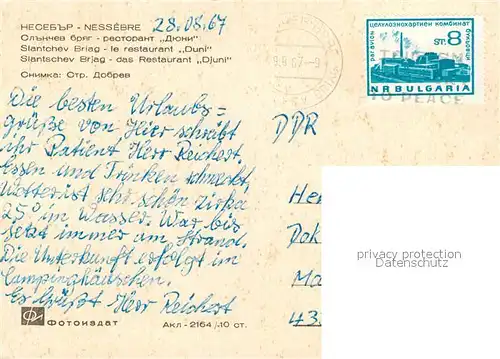 НЕСЕБЪР - NESSÉBRE 28.08.67
Слънчев бряг - ресторант „Дюни"
Slantchev Briag - le restaurant „Duni"
Slantschev Brjag - das Restaurant „Djuni"
Снимка: Стр. Добрев
Die besten Urlaubs-
grüße von Hier schreibt
ihr Patient Herr Reichert.
Essen und Trinken schmeckt,
Wetter ist sehr schön zirka
25° im Wasser. War bis
jetzt immer am Strand.
Die Unterkunft erfolgt im
Campinghäuschen.
Es Grüßt Herr Reichert
Фотоиздат Акл - 2164/-10 ст.
par avion
целулознохартиен комбинат
ST. 8
N R BULGARIA
TO PEACE
DDR
He
Dok
Ma
43
privacy protection
Datenschutz